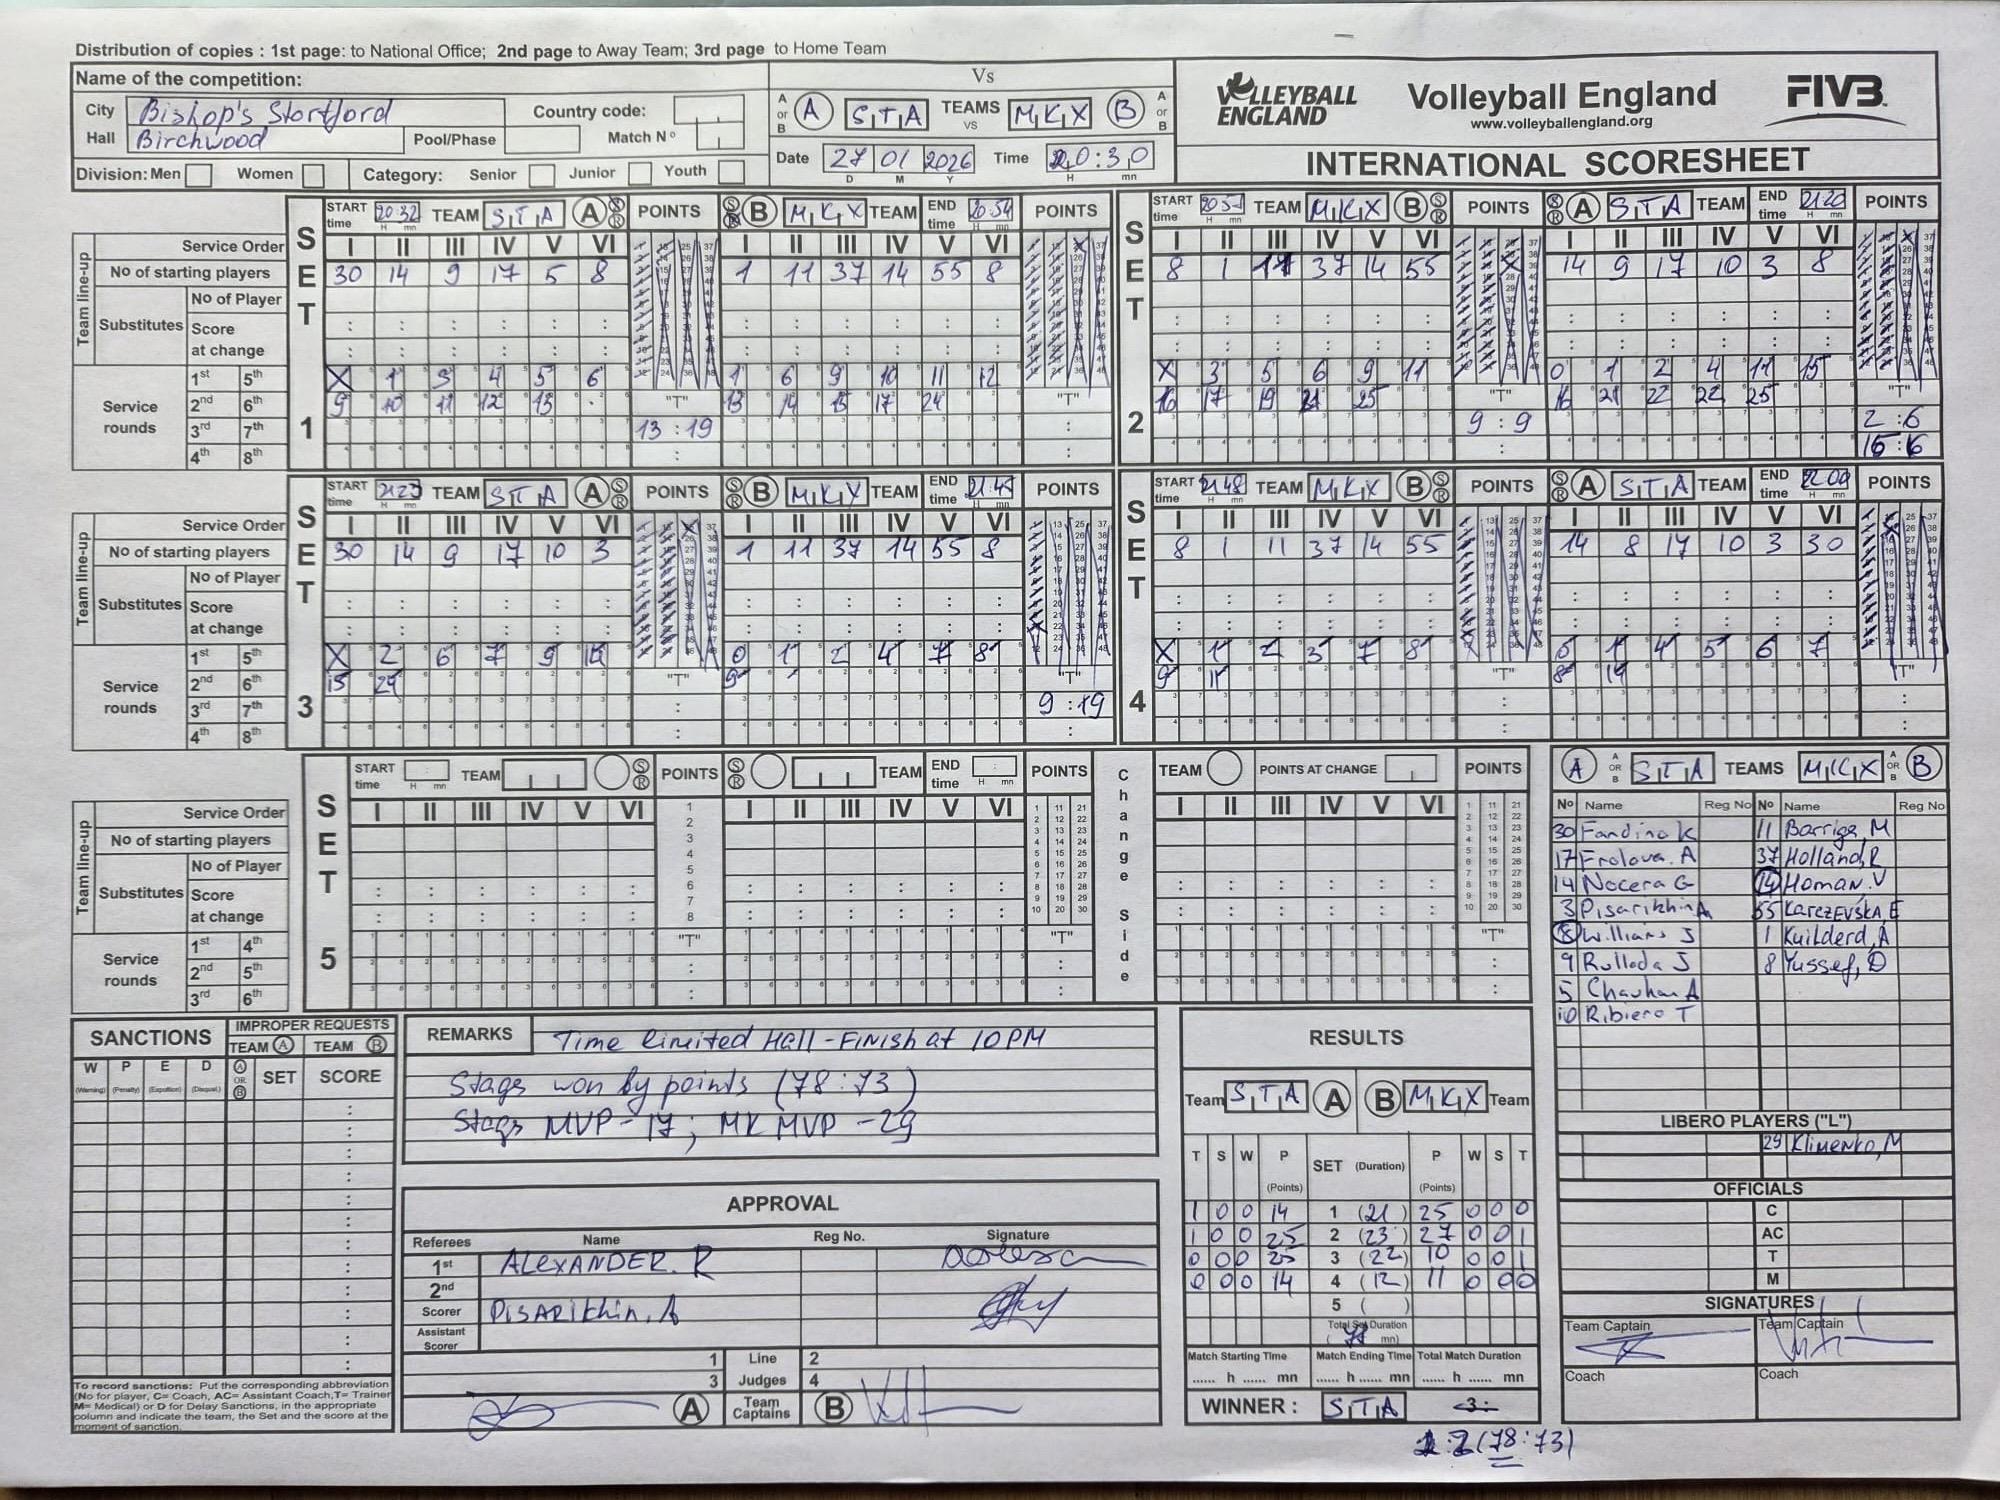 Distribution of copies : 1st page: to National Office; 2nd page to Away Team; 3rd page to Home Team
Name of the competition:
City Bishop's Stortford Country code:
Hall Birchwood Pool/Phase Match Nº
Division: Men Women Category: Senior Junior Youth
Vs
A or B A S T A TEAMS VS M K X B A or B
Date 27 01 2026 Time 20:30
D M Y H mn
VOLLEYBALL ENGLAND
Volleyball England
www.volleyballengland.org
FIVB
INTERNATIONAL SCORESHEET
SET 1
START time 20:32 TEAM S T A A S R POINTS S R B M K X TEAM END time 20:54 POINTS
Service Order I II III IV V VI I II III IV V VI
No of starting players 30 14 9 17 5 8 1 11 37 14 55 8
Team line-up
Substitutes No of Player
Score at change
Service rounds
1st 5th X 1 3 4 5 6 1 6 9 10 11 12
2nd 6th 9 10 11 12 13 13 14 15 17 24
3rd 7th
4th 8th
"T" 13 : 19
"T"
SET 2
START time TEAM M K X B S R POINTS S R A S T A TEAM END time 21:20 POINTS
I II III IV V VI I II III IV V VI
8 1 11 37 14 55 14 9 17 10 3 8
X 3 5 6 9 11 0 1 2 4 11 15
16 17 19 21 25 16 21 22 22 25
"T" 9 : 9
"T" 2 : 6
15 : 6
SET 3
START time 21:23 TEAM S T A A S R POINTS S R B M K X TEAM END time 21:45 POINTS
Service Order I II III IV V VI I II III IV V VI
No of starting players 30 14 9 17 10 3 1 11 37 14 55 8
Team line-up
Substitutes No of Player
Score at change
Service rounds
1st 5th X 2 6 7 9 0 1 2 4 7 8
2nd 6th 15 9
3rd 7th
4th 8th
"T"
"T" 9 : 19
SET 4
START time 21:48 TEAM M K X B S R POINTS S R A S T A TEAM END time 22:00 POINTS
I II III IV V VI I II III IV V VI
8 1 11 37 14 55 14 8 17 10 3 30
X 1 2 3 7 8 1 4 5 6 7
9 11 8 14
"T"
"T"
SET 5
START time TEAM S R POINTS S R TEAM END time POINTS
Change Side
TEAM POINTS AT CHANGE POINTS
Service Order I II III IV V VI I II III IV V VI I II III IV V VI
No of starting players
Team line-up
Substitutes No of Player
Score at change
Service rounds
1st 4th
2nd 5th
3rd 6th
"T" "T" "T"
A A OR B S T A TEAMS M K X A OR B B
Nº Name Reg No Nº Name Reg No
30 Fandino K 11 Barriga, M
17 Frolova. A 37 Holland, R
14 Nocera G 14 Homan. V
3 Pisarikhin A 55 KARCZEVSKA, E
8 Williams J 1 Kuilderd, A
9 Rulloda J 8 Yussef, D
5 Chauhan A
10 Ribiero T
LIBERO PLAYERS ("L")
29 Klimenko, M
OFFICIALS
C
AC
T
M
SIGNATURES
Team Captain Team Captain
Coach Coach
SANCTIONS
IMPROPER REQUESTS
TEAM A TEAM B
W P E D A OR B SET SCORE
(Warning) (Penalty) (Expultion) (Disqual.)
To record sanctions: Put the corresponding abbreviation
(No for player, C= Coach, AC= Assistant Coach,T= Trainer
M= Medical) or D for Delay Sanctions, in the appropriate
column and indicate the team, the Set and the score at the
moment of sanction.
REMARKS Time limited Hall - Finish at 10PM
Stags won by points (78:73)
Stags MVP - 17; MK MVP - 29
APPROVAL
Referees Name Reg No. Signature
1st ALEXANDER. R
2nd
Scorer PISARIKhin. A
Assistant Scorer
1 Line 2
3 Judges 4
A Team Captains B
RESULTS
Team S T A A B M K X Team
T S W P (Points) SET (Duration) P (Points) W S T
1 0 0 14 1 (21) 25 0 0 0
1 0 0 25 2 (23) 27 0 0 1
0 0 0 25 3 (22) 10 0 0 1
0 0 0 14 4 (12) 11 0 0 0
5 ( )
Total Set Duration
( 78 mn)
Match Starting Time Match Ending Time Total Match Duration
...... h ...... mn ...... h ...... mn ...... h ...... mn
WINNER : S T A 3:
2 (78:73)